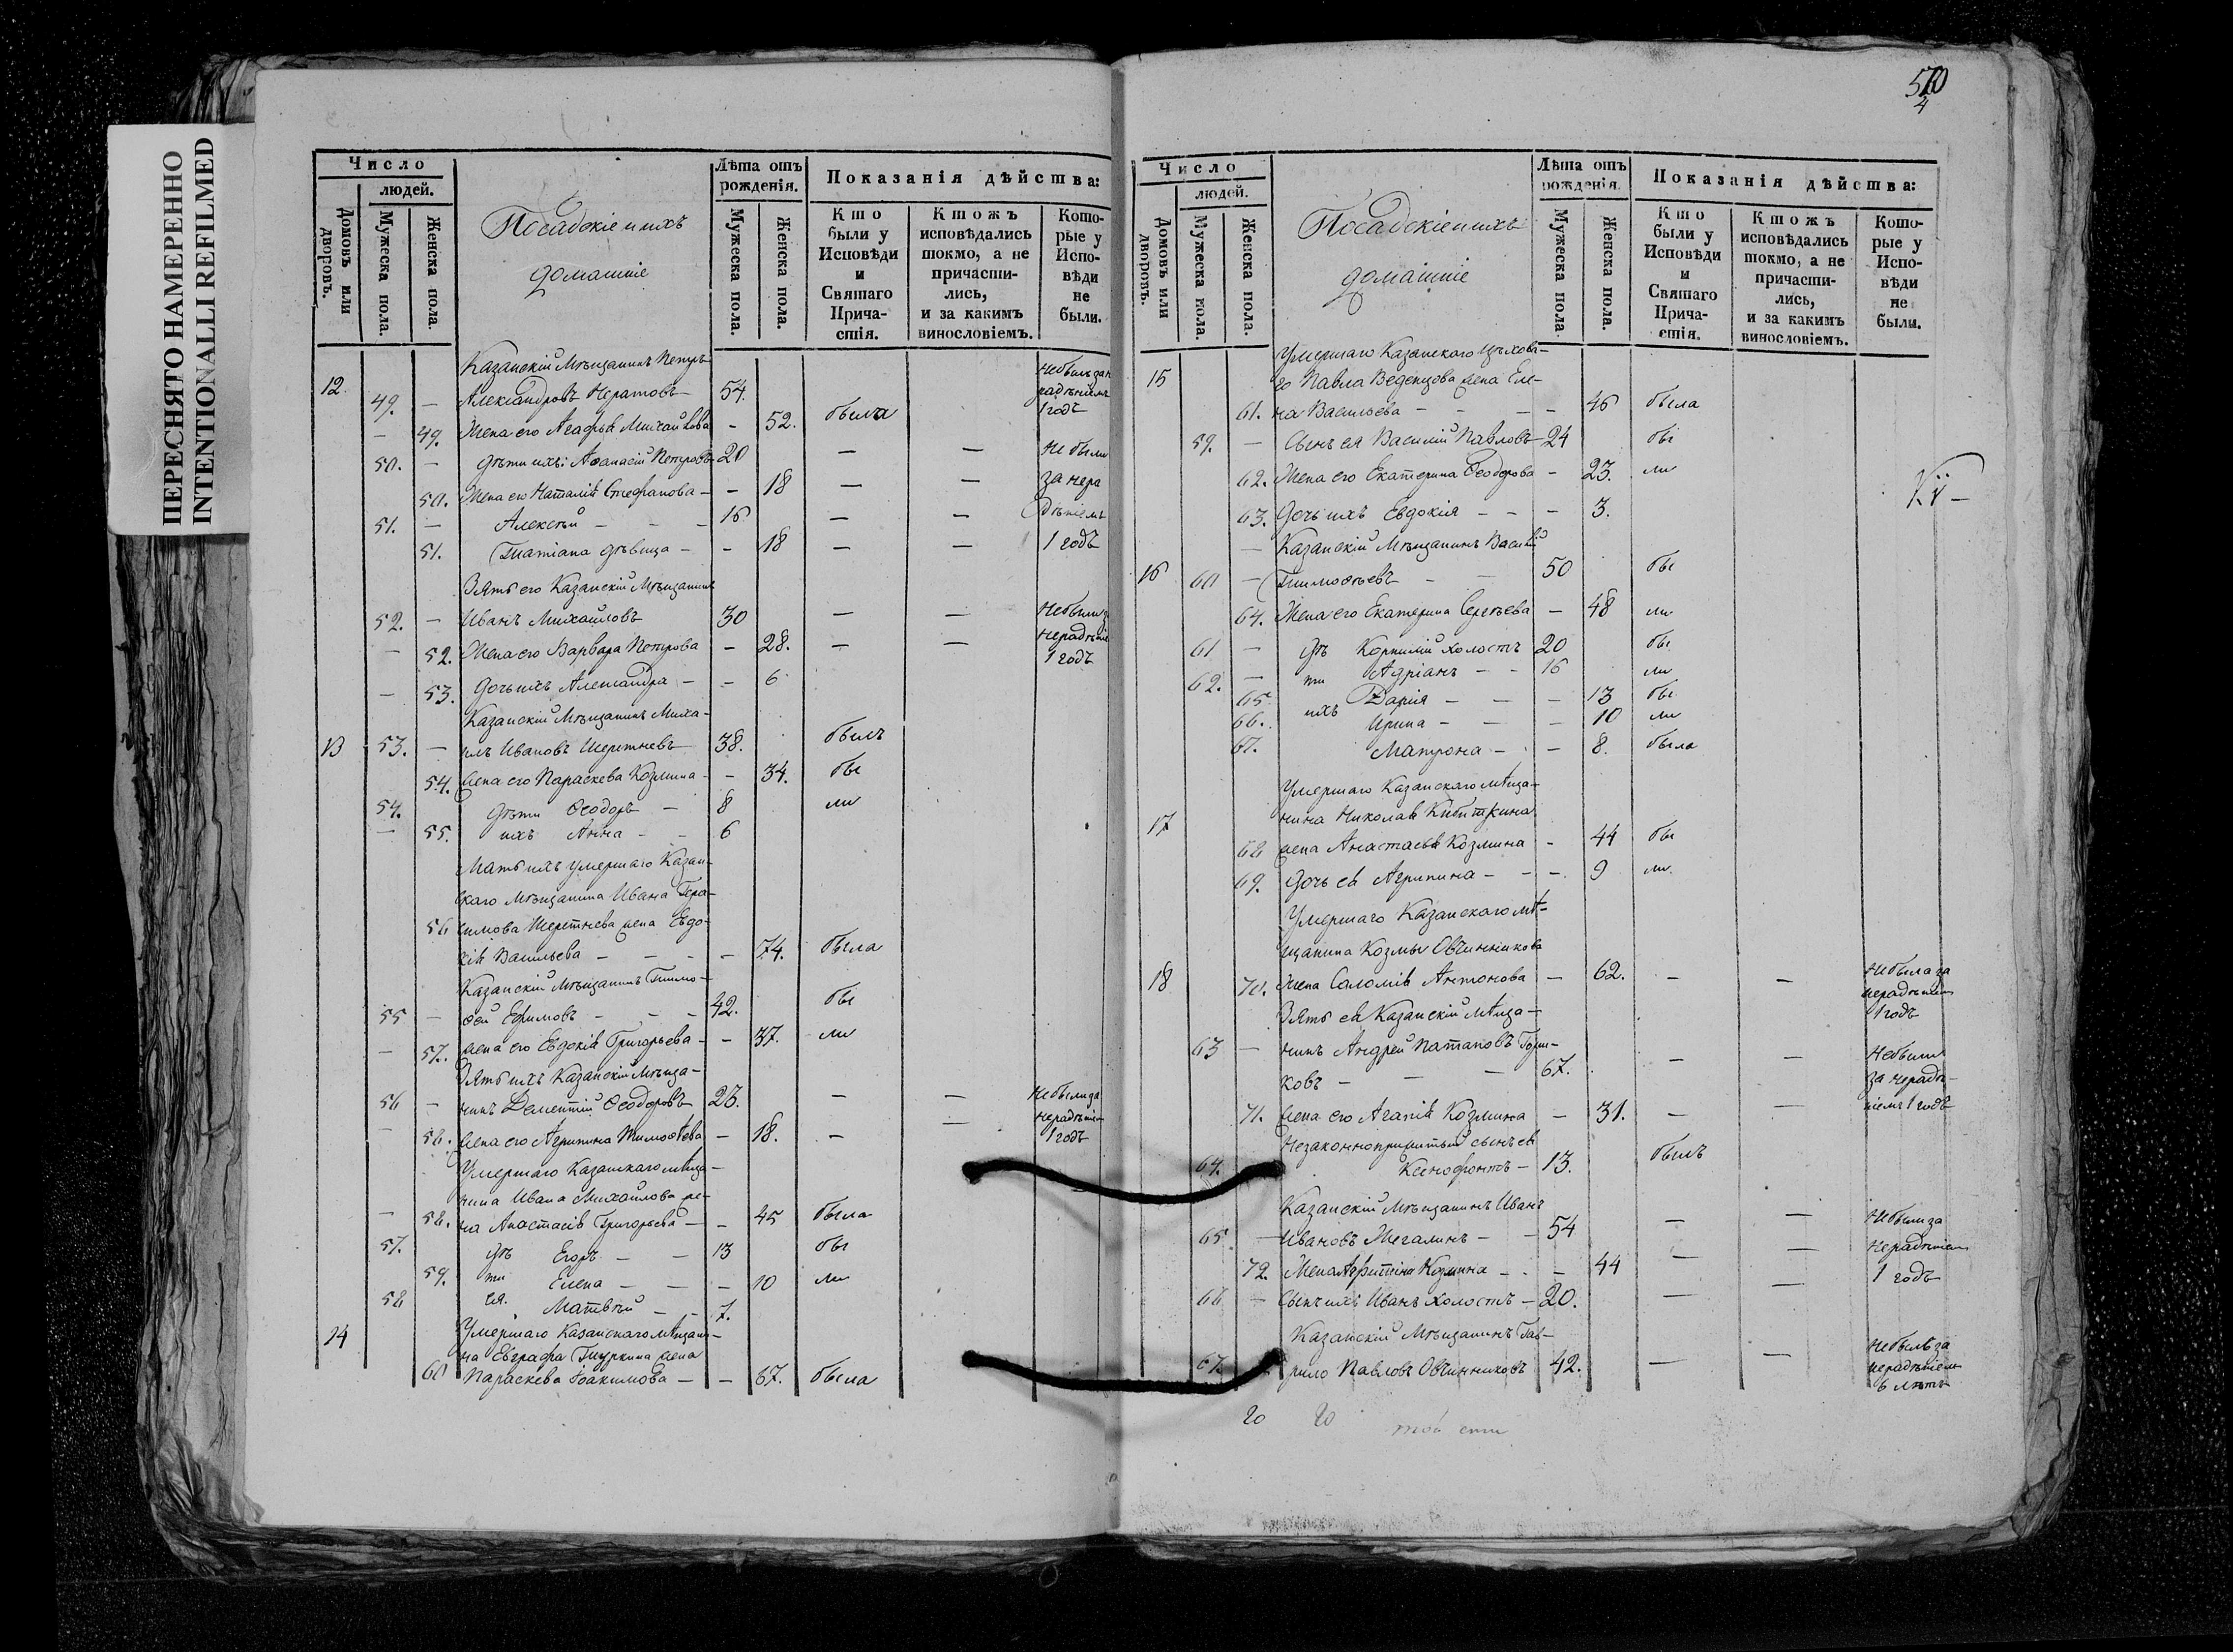 ПЕРЕСНЯТО НАМЕРЕННО
INTENTIONALLI REFILMED
Число
людей.
Домовъ или дворовъ.
Мужеска пола.
Женска пола.
Посадскіе и ихъ
домашніе
Лѣта отъ рожденія.
Мужеска пола.
Женска пола.
Показанія дѣйства:
Кто были у Исповѣди и Святаго Причастія.
Ктожъ исповѣдались токмо, а не причастились, и за какимъ винословіемъ.
Которые у Исповѣди не были.
Казанскій Мѣщанинъ Петръ
12. 49. — Александровъ Нератовъ 54. 1 годъ
— 49. Жена его Агафья Михайлова — 52. была
50. — Дѣти ихъ: Афанасій Петровъ 20 — — Не были
50. Жена его Наталія Стефанова — — 18 — — за нера
51. — Алексѣй — — — 16 — — дѣніемъ
51. Татіана дѣвица — — 18 — — 1 годъ
Зять его Казанскій Мѣщанинъ
52. — Иванъ Михайловъ 30 — — Не были за
— 52. Жена его Варвара Петрова — 28. — — нерадѣніе
1 годъ
— 53. Дочь ихъ Александра — — 6
Казанскій Мѣщанинъ Миха-
13 53. — илъ Ивановъ Шеретневъ 38. былъ
54. жена его Параскева Козмина — — 34. бы
54. Дѣти Ѳеодоръ — 8 ли
— 55. ихъ Анна — — 6
Мать ихъ умершаго Казан-
скаго Мѣщанина Ивана Гера-
56 симова Шеретнева жена Евдо-
кія Васильева — — — — 74. была
Казанскій Мѣщанинъ Тимо-
55 — ѳей Ефимовъ — — — 42. бы
— 57. жена его Евдокія Григорьева — — 37. ли
Зять ихъ Казанскій Мѣща-
56 — нинъ Дементій Ѳеодоровъ 23. — — Не были за
нерадѣніе
— 58. жена его Агрипина Тимоѳеева — 18. — — 1 годъ
Умершаго Казанскаго мѣща-
нина Ивана Михайлова же-
— 58. на Анастасія Григорьева — — 45 была
57. Дѣ Егоръ — — 13 бы
59. ти Елена — — — 10 ли
58 ея. Матвѣй — — 7.
14 Умершаго Казанскаго мѣщани-
на Евграфа жена
60 Параскева Іоакимова — — 67. была
570
4
Число
людей.
Домовъ или дворовъ.
Мужеска пола.
Женска пола.
Посадскіе и ихъ
домашніе
Лѣта отъ рожденія.
Мужеска пола
Женска пола.
Показанія дѣйства:
Кто были у Исповѣди и Святаго Причастія.
Ктожъ исповѣдались токмо, а не причастились, и за какимъ винословіемъ.
Которые у Исповѣди не были.
Умершаго Казанскаго цѣхова-
15 го Павла Веденцова жена Еле-
61. на Васильева — — — — 46 была
59. — Сынъ ея Василій Павловъ — 24 бы
62. Жена его Екатерина Ѳеодорова — 23. ли
63. Дочь ихъ Евдокія — — — 3.
— Казанскій Мѣщанинъ Василій
16 60 — Тимоѳеевъ — — 50 бы
64. Жена его Екатерина Сергѣева — 48 ли
61 — Дѣ Корнилій холостъ 20 бы
62. — ти Адріанъ — — 16 ли
65 ихъ Дарія — — — 13 бы
66. Ирина — — — 10 ли
67. Матрона — — 8. была
Умершаго Казанскаго мѣща-
17 нина Николая Кибиткина
68 жена Анастасья Козмина — 44 бы
69. Дочь ея Агрипина — — — 9 ли.
Умершаго Казанскаго мѣ-
щанина Козмы Овчинникова
18 70. жена Саломія Антонова — 62. — — Не была за
нерадѣніем
1 годъ
Зять ея Казанскій Мѣща-
63 — нинъ Андрей Патаповъ
ковъ — — — 67. — — Не были
за нерадѣ-
71. жена его Агапія Козмина — 31. — — ніемъ 1 годъ
Незаконноприжитый сынъ ея
64. Ксенофонтъ — 13. былъ
Казанскій Мѣщанинъ Иванъ
65 — Ивановъ Мегалинъ — — 54 — — Не были за
72. Жена Козмина — — — 44 — — нерадѣніем
66 — Сынъ ихъ Иванъ холостъ — 20. — — 1 годъ
Казанскій Мѣщанинъ Гав-
67. рило Павловъ Овчинниковъ 42. — — Не былъ за
нерадѣніем
6 лѣтъ
20 20